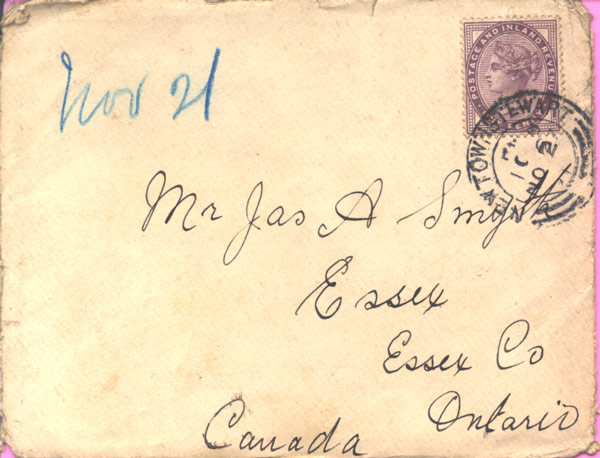 Nov 21
POSTAGE AND INLAND REVENUE
NEWTOWNSTEWART
Mr Jas A Smyth
Essex
Essex Co
Ontario
Canada